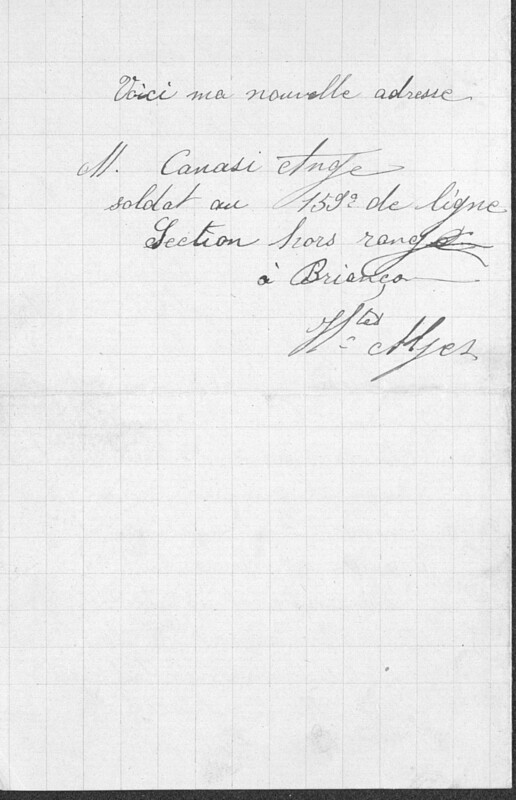 Voici ma nouvelle adresse
M. Canasi Ange
soldat au 159e de ligne
Section hors rang
à Briançon
Htes Alpes